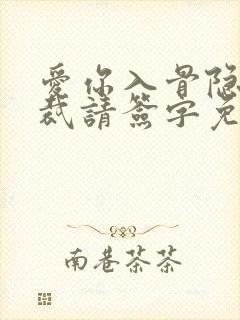 愛你入骨隐
裁請簽字免
南巷茶茶